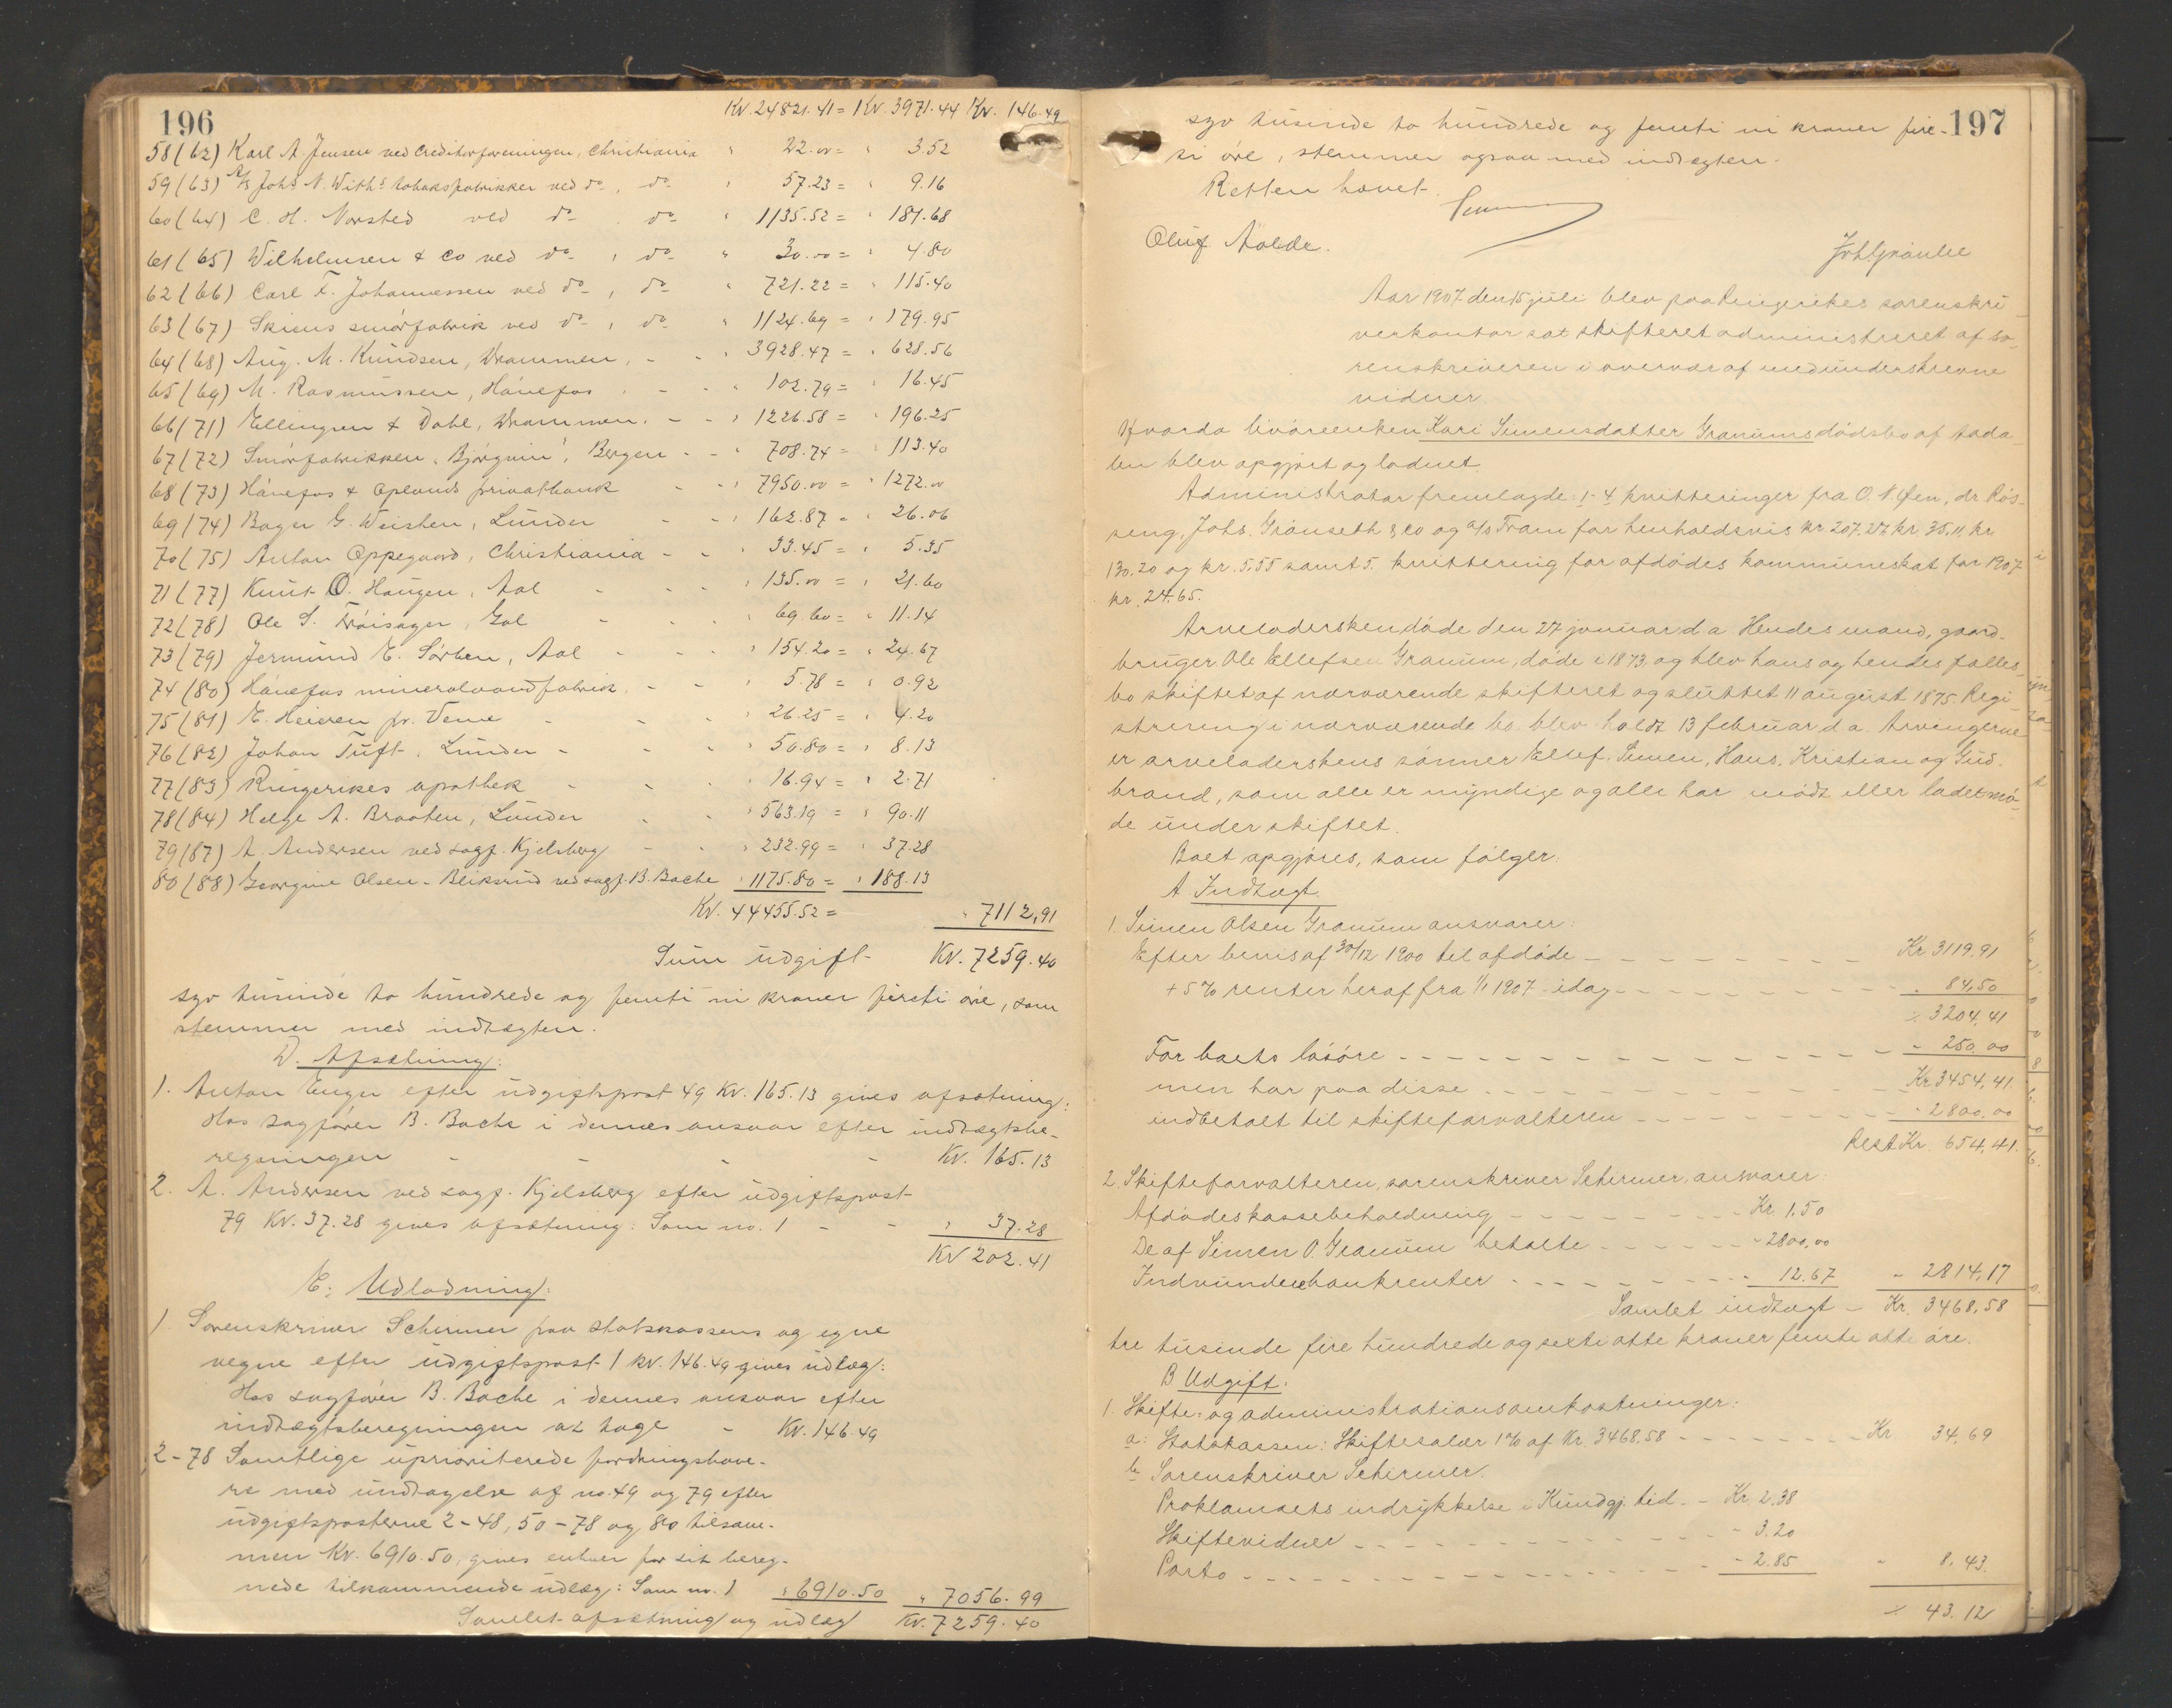 196
Kr. 24821.41 = Kr. 3971.44 Kr. 146.49
58 (62) Karl A. Jensen ved Creditorforeningen, Christiania " 22.00 = " 3.52
59 (63) A/S Johs N. With's tobaksfabrikker ved do, do " 57.23 = " 9.16
60 (64) C. H. Norsted ved do, do " 1135.52 = " 181.68
61 (65) Wilhelmsen & Co ved do, do " 30.00 = " 4.80
62 (66) Carl F. Johannessen ved do, do " 721.22 = " 115.40
63 (67) Skiens smörfabrik ved do, do " 1124.69 = " 179.95
64 (68) Aug. M. Knudsen, Drammen, - - " 3928.47 = " 628.56
65 (69) M. Rasmussen, Hönefos - - " 102.79 = " 16.45
66 (71) Ellingsen & Dahl, Drammen. - - " 1226.58 = " 196.25
67 (72) Smörfabrikken "Björgvin", Bergen - - " 708.74 = " 113.40
68 (73) Hönefos & Oplands privatbank - - " 7950.00 = " 1272.00
69 (74) Bager G. Weishen, Lunder - - " 162.87 = " 26.06
70 (75) Anton Oppegaard, Christiania - - " 33.45 = " 5.35
71 (77) Knut O. Haugen, Aal - - - " 135.00 = " 21.60
72 (78) Ole S. Tröisager, Gol - - - " 69.60 = " 11.14
73 (79) Jermund E. Sörben, Aal - - - " 154.20 = " 24.67
74 (80) Hönefos mineralvandfabrik. - - " 5.78 = " 0.92
75 (81) E. Heieren pr. Veme - - - " 26.25 = " 4.20
76 (82) Johan Tuft, Lunder - - - " 50.80 = " 8.13
77 (83) Ringerikes apothek - - - " 16.94 = " 2.71
78 (84) Helge A. Braaten, Lunder - - " 563.19 = " 90.11
79 (87) A. Andersen ved sagf. Kjelsberg - - " 232.99 = " 37.28
80 (88) Georgine Olsen-Bliksrud ved sagf. B. Bache " 1175.80 = " 188.13
Kr. 44455.52 = " 7112,91
Sum udgift Kr. 7259.40
syv tusinde to hundrede og femti ni kroner firti öre, som
stemmer med indtægten.
D. Afsætning:
1. Anton Enger efter udgiftspost 49 Kr. 165.13 gives afsætning:
Hos sagförer B. Bache i dennes ansvar efter indtægtsbe-
regningen - - - - Kr. 165.13
2. A. Andersen ved sagf. Kjelsberg efter udgiftspost
79 Kr. 37.28 gives afsætning: Som no. 1 - - " 37.28
Kr 202.41
E. Udlodning:
1. Sorenskriver Schirmer paa statskassens og egne
vegne efter udgiftspost 1 kr. 146.49 gives udlæg:
Hos sagförer B. Bache i dennes ansvar efter
indtægtsberegningen at tage - Kr. 146.49
2-78 Samtlige uprioriterede fordringshave-
re med undtagelse af no. 49 og 79 efter
udgiftsposterne 2-48, 50-78 og 80 tilsam-
men Kr. 6910.50, gives enhver for sit bereg-
nede tilkommende udlæg: Som no. 1 " 6910.50 " 7056.99
Samlet afsætning og udlæg Kr. 7259.40
197
syv tusinde to hundrede og femti ni kroner fire-
ti öre, stemmer ogsaa med indtægten.
Retten hævet.
Oluf Aolde.
Joh. Granlie
Aar 1907 den 15 juli blev paa Ringerikes sorenskri
verkontor sat skifteret administreret af so-
renskriveren i overvær af medunderskrevne
vidner.
Hvorda livörenken Kari Simensdatter Granums dödsbo af Aada-
len blev opgjort og lodnet.
Administrator fremlagde: 1-4 kvitteringer fra O. N. Öen, dr Rös-
seng, Johs. Grönseth & Co og a/s Fram for henholdsvis kr 207.27, kr. 35,11, kr.
130.20 og kr. 5.55 samt 5. kvittering for afdödes kommuneskat for 1907
kr. 24.65.
Arveladersken döde den 27 januar d a. Hendes mand, gaard-
bruger Ole Ellefsen Granum, döde i 1873, og blev hans og hendes fælles-
bo skiftet af nærværende skifteret og sluttet 11 august 1875. Regi
strering i nærværende bo blev holdt 13 februar d a. Arvingerne
er arveladerskens sönner Ellef, Simen, Hans, Kristian og Gud-
brand, som alle er myndige og alle har mödt eller ladet mö-
de under skiftet.
Boet opgjöres, som fölger:
A Indtægt.
1. Simen Olsen Granum ansvarer:
Efter bevis af 30/12 1900 til afdöde - - - Kr 3119,91
+ 5 % renter heraf fra 1/1 1907 - idag - - - " 84,50
" 3204,41
For boets lösöre - - - " 250,00
Kr 3454,41
men har paa disse - - -
indbetalt til skifteforvalteren - - - " 2800,00
Rest Kr 654,41.
2. Skifteforvalteren, sorenskriver Schirmer, ansvarer:
Afdödes kassebeholdning - - - Kr. 1,50
De af Simen O. Granum betalte - - - " 2800,00
Indvundne bankrenter - - - " 12.67 " 2814,17
Samlet indtægt - Kr. 3468,58
tre tusinde fire hundrede og sexti otte kroner femti otte öre.
B Udgift.
1. Skifte- og administrationsomkostninger:
a: Statskassen: Skiftesalær 1% af Kr. 3468,58 - - - Kr 34,69
b Sorenskriver Schirmer.
Proklamaets indrykkelse i Kundgj. tid. - Kr. 2.38
Skiftevidner - - - " 3.20
Porto - - - " 2.85 " 8.43.
" 43.12